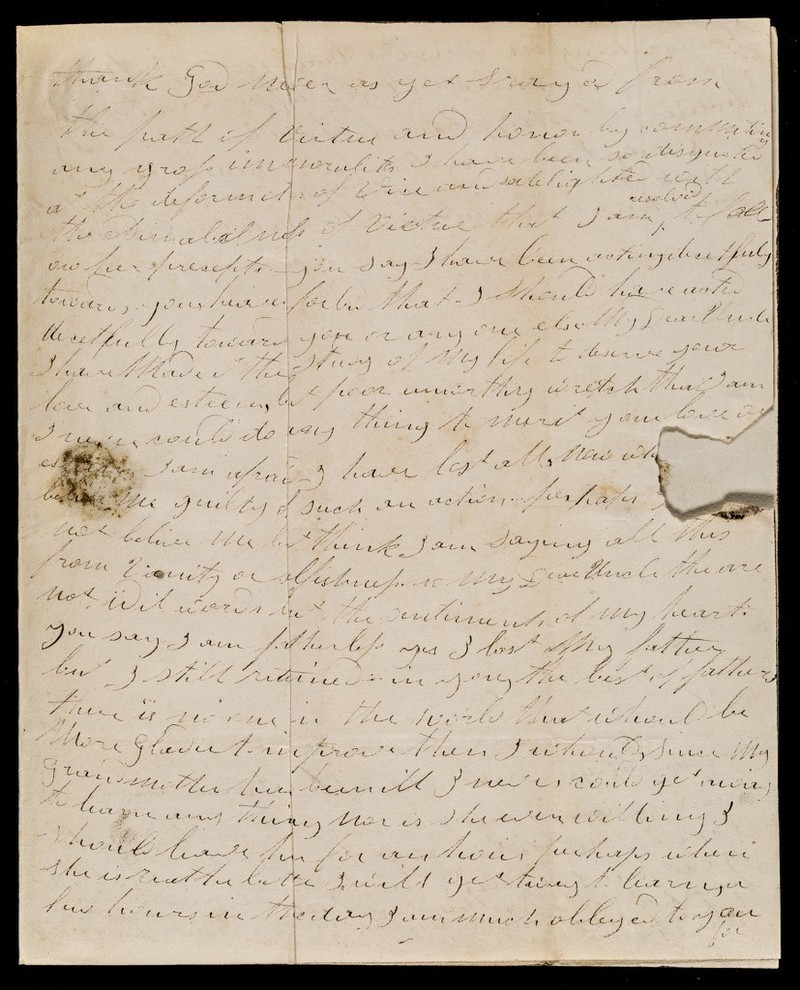 thank God never as yet strayed from
the path of virtue and honor by committing
any gross immorality I have been so disgusted
at the deformity of Vice and so delighted with
the of Virtue that I am resolved to
her precepts you say I have been acting deceitfuly
towards you heaven forbid that I should have acted
decetfully towards you or any one else My Dear Uncle
I have Made it the study of My life to deserve your
love and esteem but poor unworthy wretch that I am
I never could do any thing to merit your love or
I am afraid I have lost all Now
believe me guilty of such an action perhaps
not believe Me but think I am saying all this
from Vanity or selfishness no My Dear Uncle the are
Not words but the sentiments of my heart
you say I am fatherless yes I lost My father
but I still retained in you the best of fathers
there is no one in the world that whould be
More Glad to improve then I whould Since My
Grandmother has been ill I never could get away
to learn any thing Nor is she ever willing I
should leave her for an hour perhaps when
she is better I will get away to learn a
few hours in the day I am much obleyed to you
for